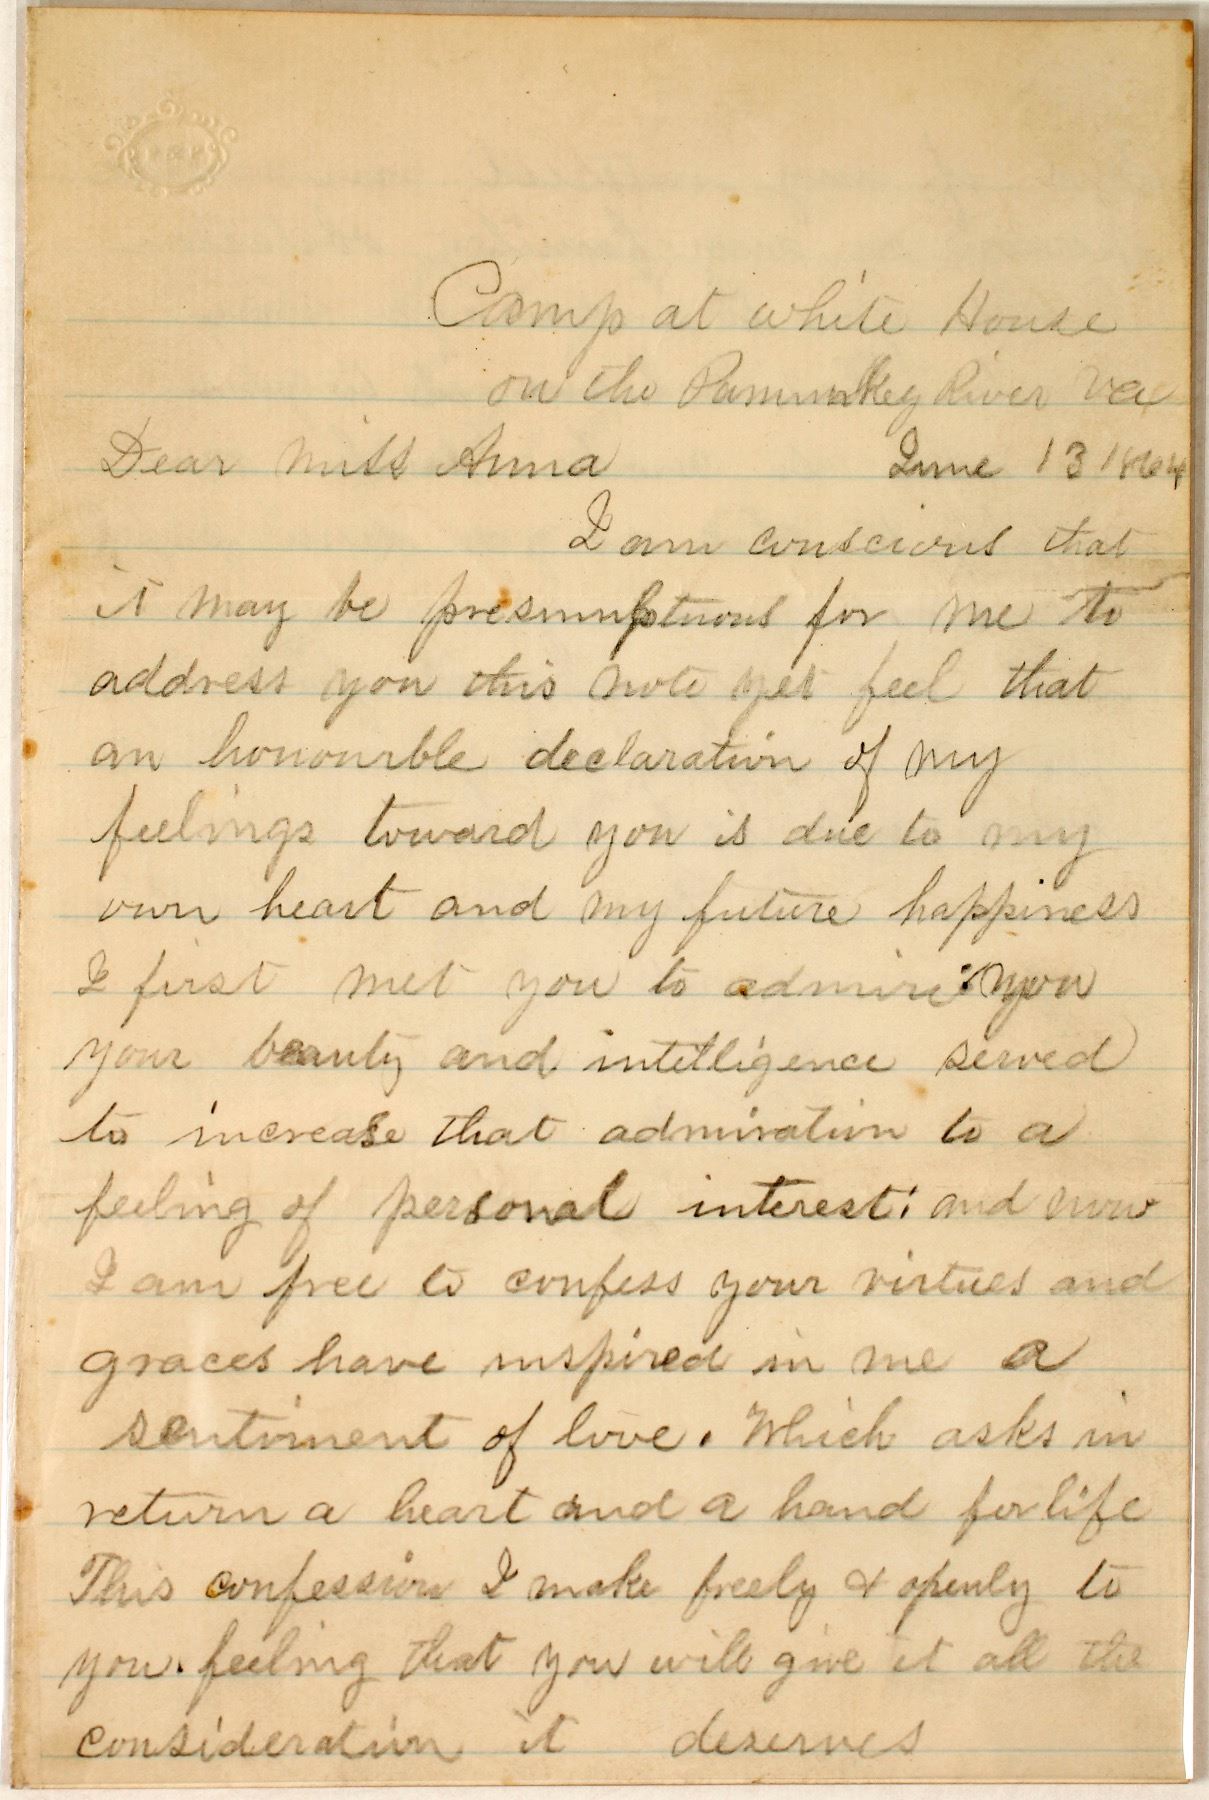 Camp at white House
on the Pammukey River Va
Dear Miss Anna June 13 1864
I am conscious that
it may be presumptuous for me to
address you this note yet feel that
an honourble declaration of my
feelings toward you is due to my
own heart and my future happiness
I first met you to admire: you
your beauty and intelligence served
to increase that admiration to a
feeling of personal interest: and now
I am free to confess your virtues and
graces have inspired in me a
sentiment of love. Which asks in
return a heart and a hand for life
This confession I make freely & openly to
you. feeling that you will give it all the
consideration it deserves